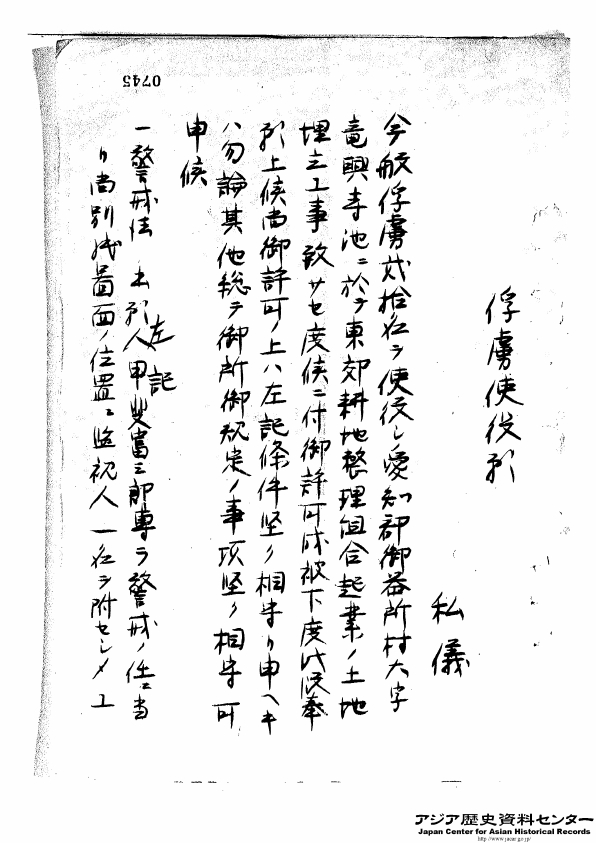 0745
俘虜使役願
私儀
今般俘虜弐拾名ヲ使役シ愛知郡御器所村大字
竜興寺池ニ於テ東郊耕地整理組合起業ノ土地
埋立工事致サセ度候ニ付御許可成被下度此段奉
願上候尚御許可ノ上ハ左記條件堅ク相守リ申ヘキ
ハ勿論其他総テ御所御規定ノ事項堅ク相守可
申候
左記
一警戒法 出願人甲斐富三郎専ラ警戒ノ任ニ当
リ尚別紙圖面ノ位置ニ監視人一名ヲ附セシメエ
アジア歴史資料センター
Japan Center for Asian Historical Records
http://www.jacar.go.jp/